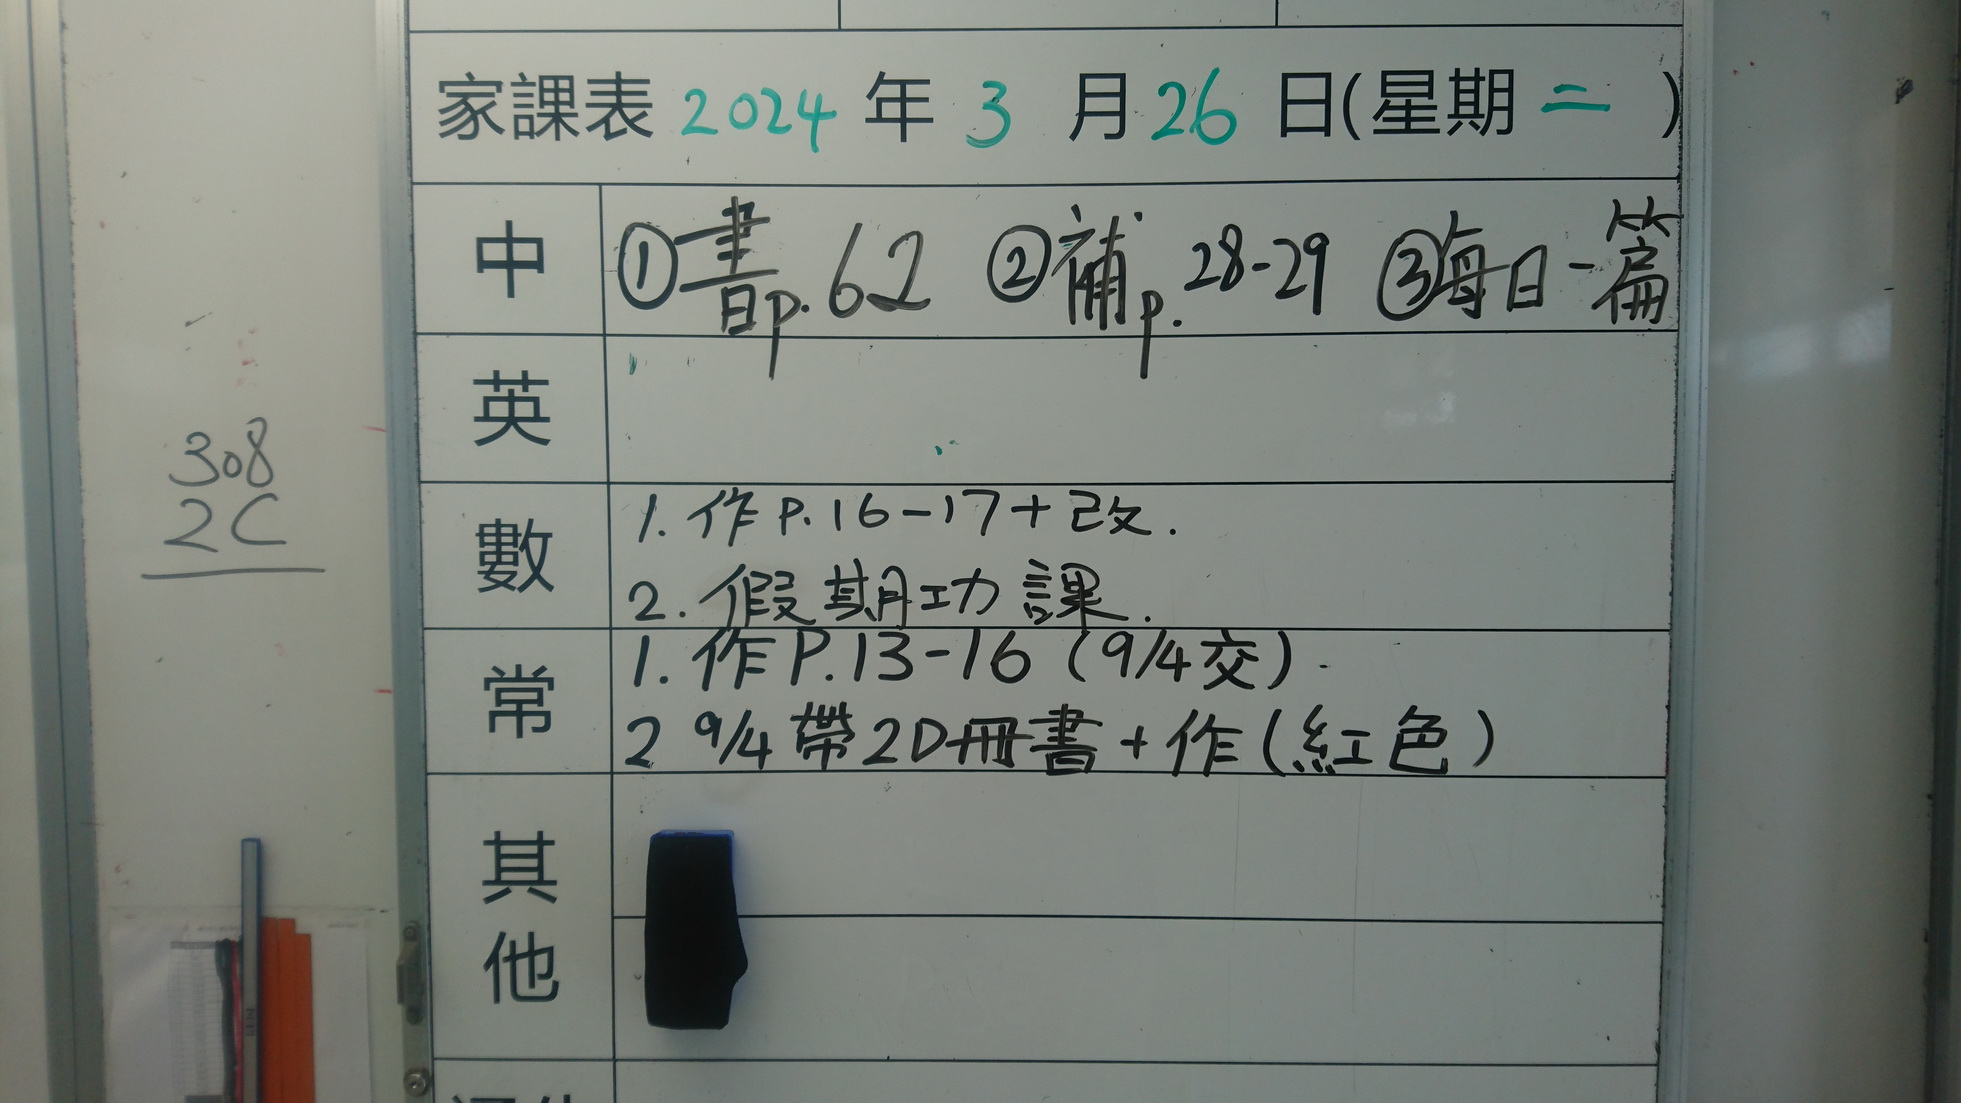 家課表 2024 年 3 月 26 日(星期 二 )
中 ①書p.62 ②補p.28-29 ③每日一篇
英
308
2C
數 1. 作P.16-17+改.
2. 假期功課.
常 1. 作P.13-16 (9/4交).
2 9/4 帶2D冊書+作(紅色)
其他